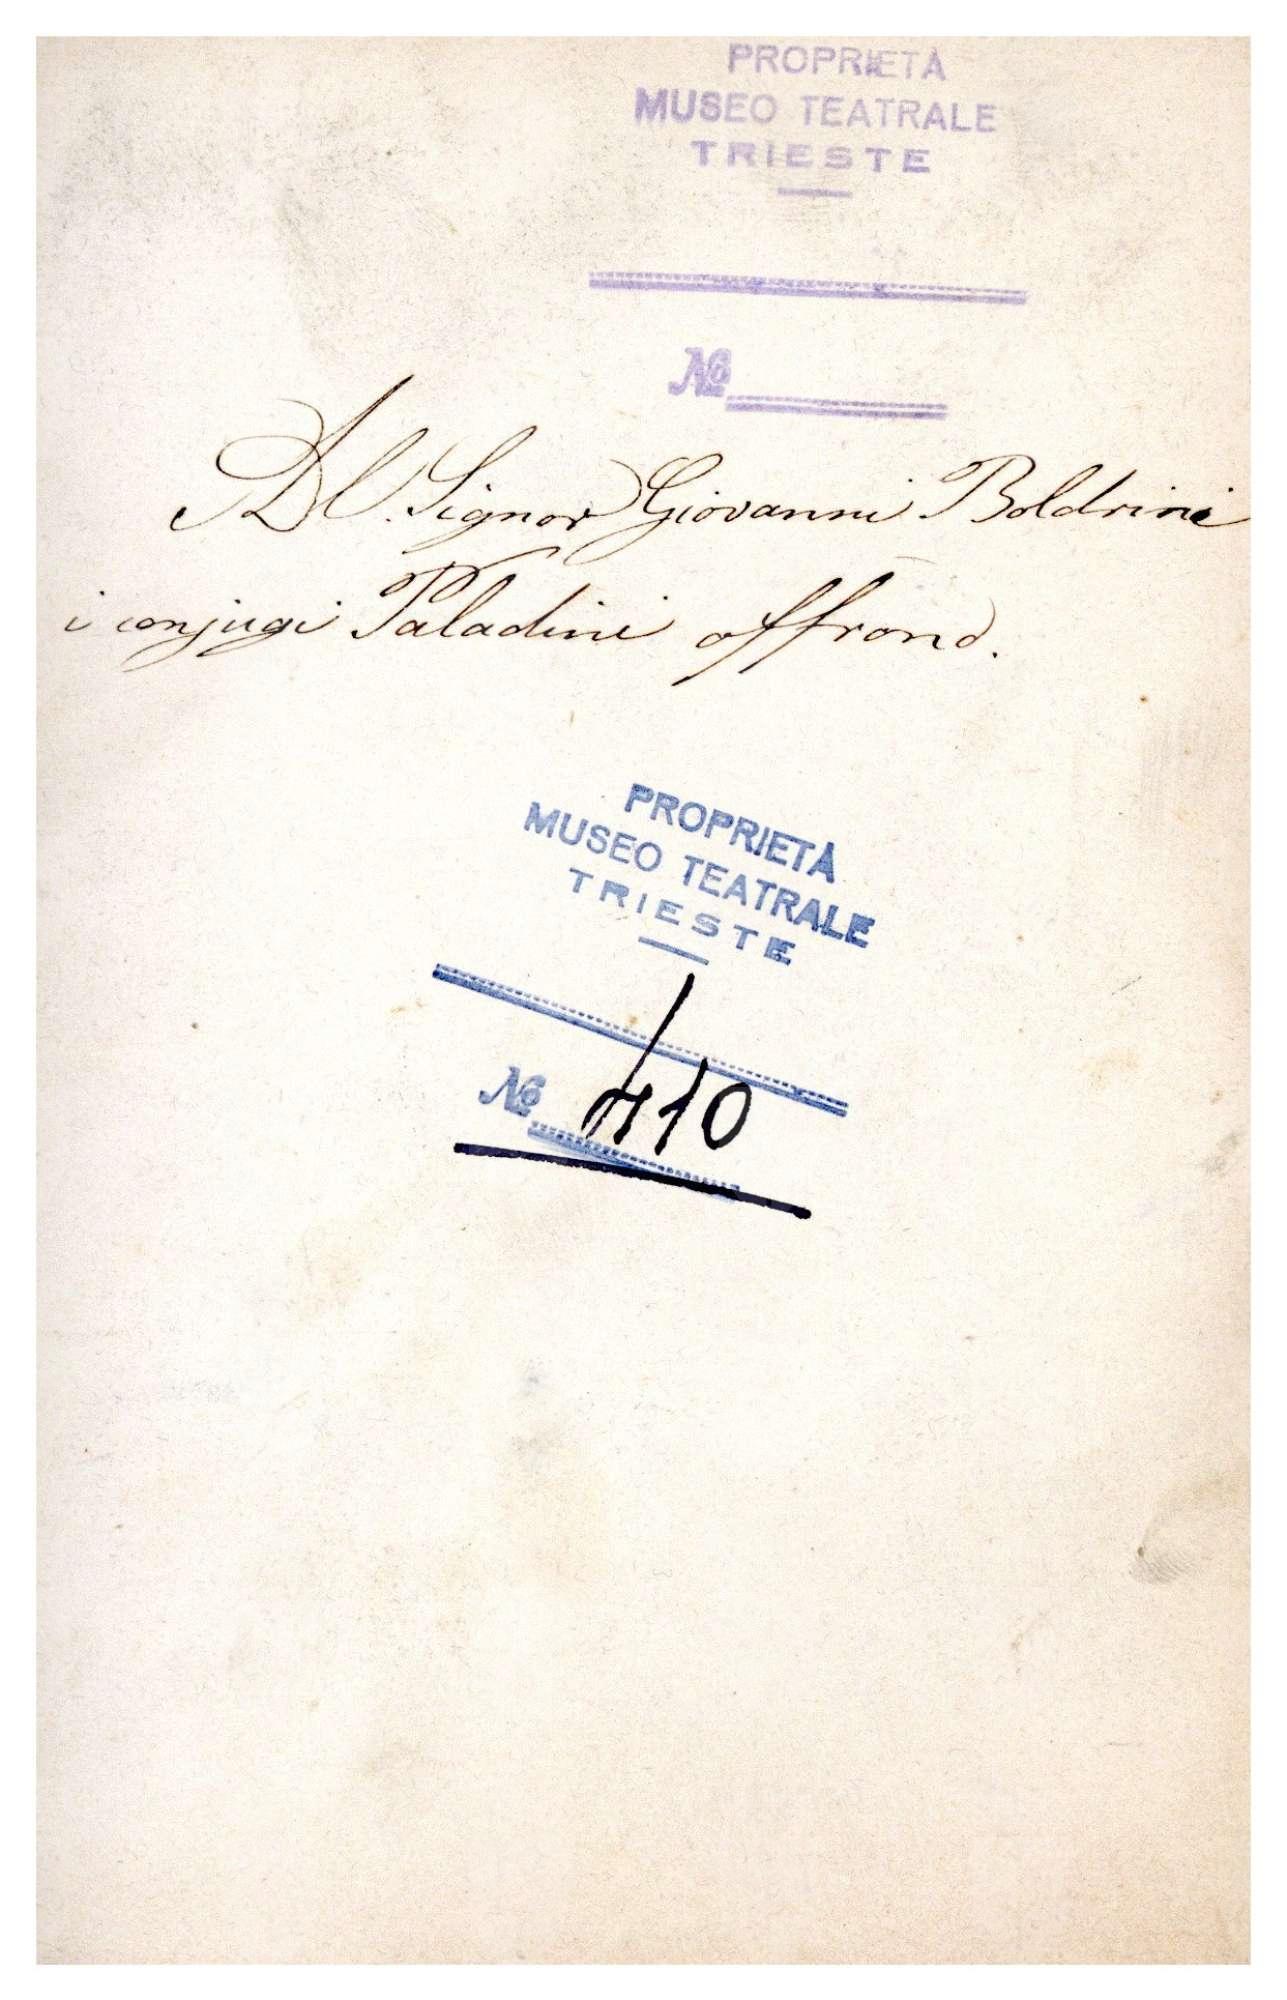 PROPRIETÀ
MUSEO TEATRALE
TRIESTE
№
Al Signor Giovanni Boldrini
i conjugi Paladini offrono.
PROPRIETÀ
MUSEO TEATRALE
TRIESTE
№ 410